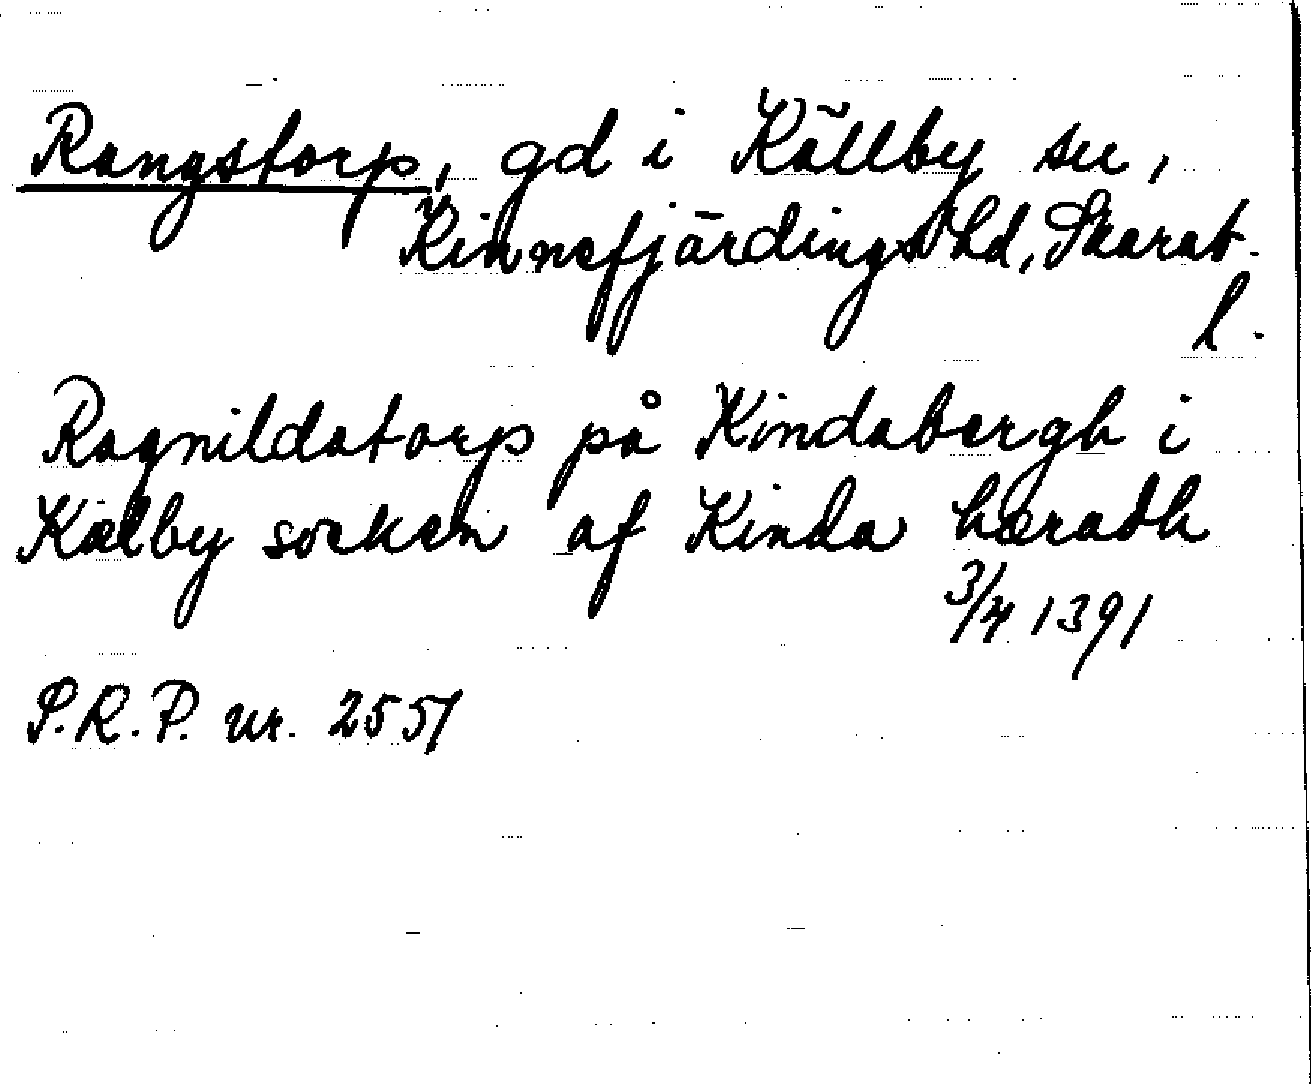 Rangstorp, gd i Källby sn,
Kinnefjärdings hd, Skarab.
l.
Ragnildatorp på Kindabergh i
Kælby socken af Kinda hæradh
3/4 1391
S.R.P. nr. 2551